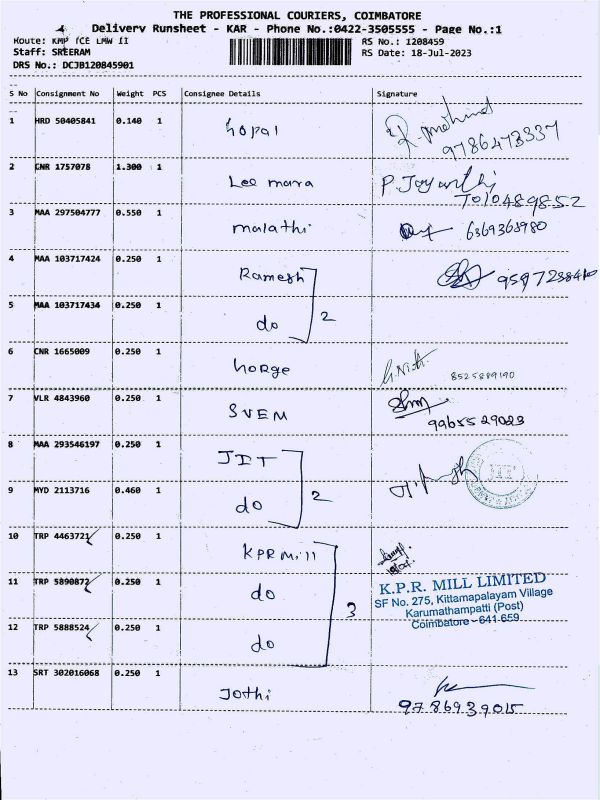 THE PROFESSIONAL COURIERS, COIMBATORE
Delivery Runsheet - KAR - Phone No.:0422-3505555 - Page No.:1
Route: KMP ICE LMW II
RS No.: 1208459
Staff: SREERAM
RS Date: 18-Jul-2023
DRS No.: DCJB120845901
S No Consignment No Weight PCS Consignee Details Signature
1 HRD 50405841 0.140 1 Gopal
9786473337
2 CNR 1757078 1.300 1 Lee mara P. Jayanthi
7010489852
3 MAA 297504777 0.550 1 malathi 6369363980
4 MAA 103717424 0.250 1 Ramesh
5 MAA 103717434 0.250 1 do 2
6 CNR 1665009 0.250 1 8525889190
7 VLR 4843960 0.250 1 SVEM
9965529023
8 MAA 293546197 0.250 1 JIT
JIT
9 MYD 2113716 0.460 1 do 2
10 TRP 4463721 0.250 1 KPR Mill
11 TRP 5890872 0.250 1 do 3
K.P.R. MILL LIMITED
SF No. 275, Kittampalayam Village
Karumathampatti (Post)
Coimbatore - 641 659.
12 TRP 5888524 0.250 1 do
13 SRT 302016068 0.250 1 Jothi
9786939015